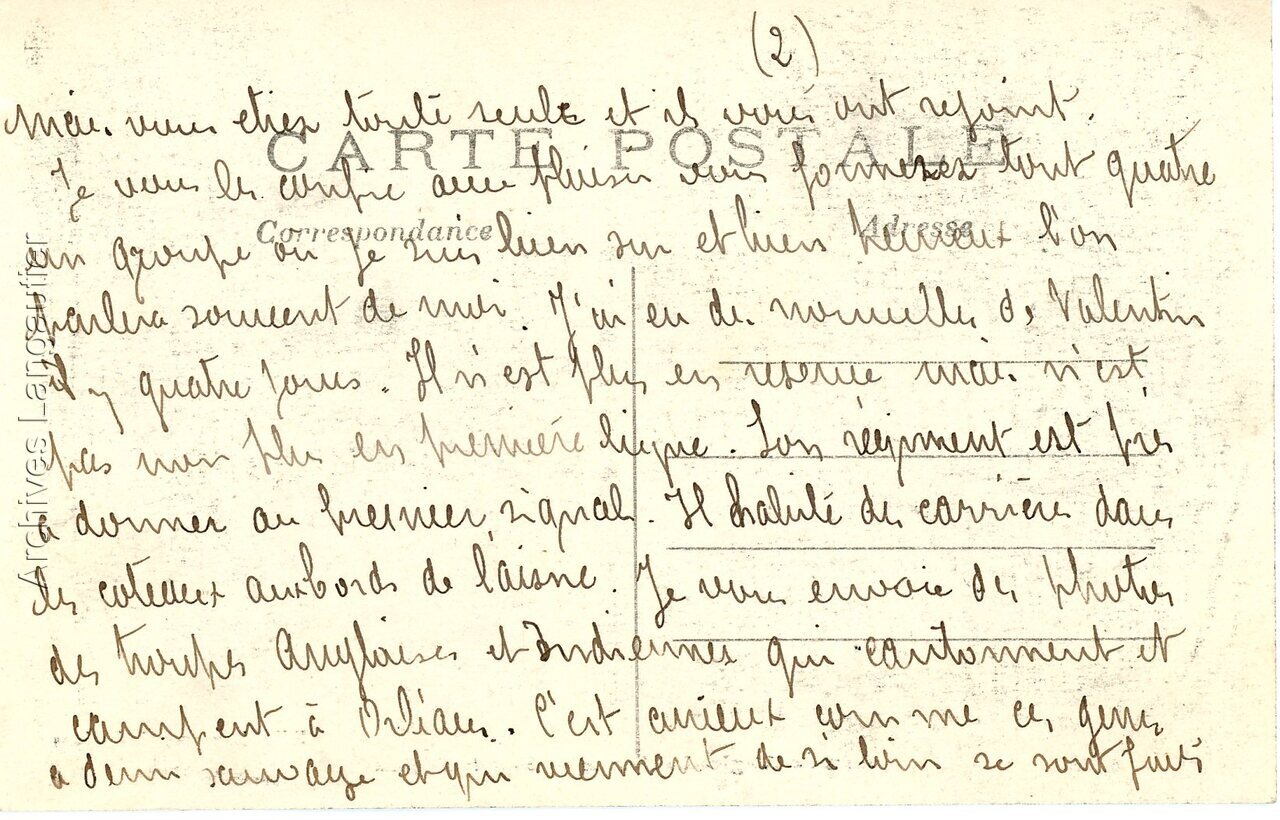 (2)
Mais vous etiez toute seule et ils vous ont rejoint.
CARTE POSTALE
Je vous les confie avec plaisir vous formerez tout quatre
Correspondance
Adresse
un groupe ou je suis bien sur et bien heureux l'on
parlera souvent de moi. J'ai eu des nouvelles de Valentin
il y quatre jours. Il n'est plus en reserve mais n'est
pas non plus en première ligne. Son régiment est près
a donner au premier signal. Il habite des carrières dans
des coteaux aux bords de l'aisne. Je vous envoie des photos
des troupes Anglaises et Indiennes qui cantonnent et
campent à Orléans. C'est curieux comme ces gens
a demi sauvage et qui viennent de si loin se sont faits
Archives Lanoautier